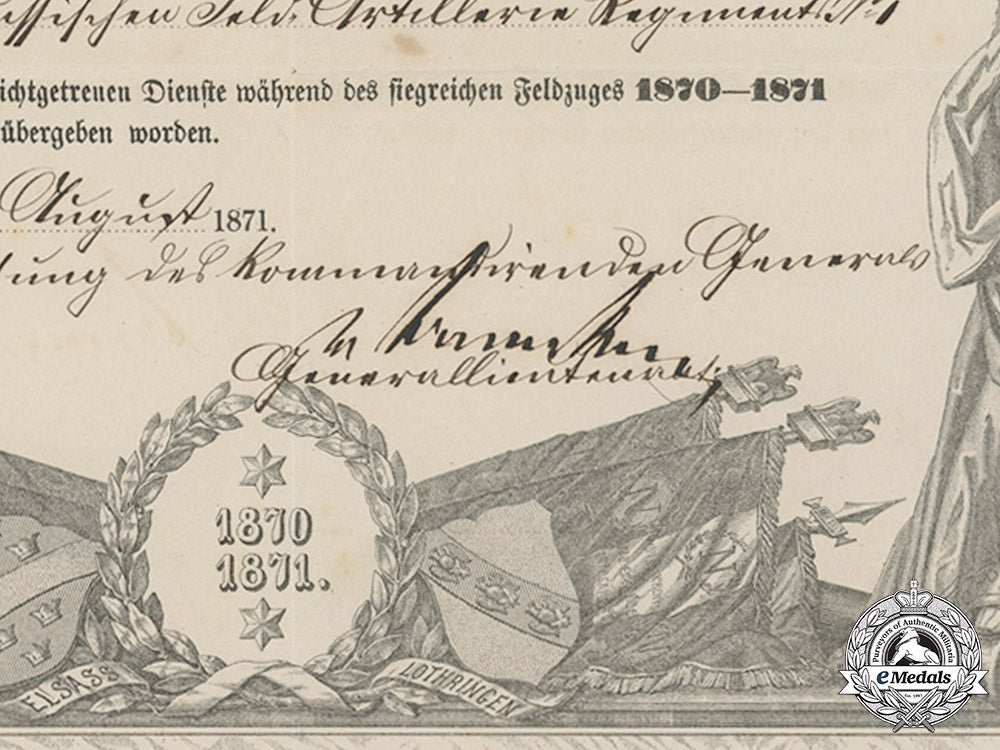 ssischen Feld-Artillerie Regiments № 1
ichtgetreuen Dienste während des siegreichen Feldzuges 1870—1871
übergeben worden.
August 1871.
tung des kommandirenden Generals
Generallieutenant
1870
1871.
ELSASS
LOTHRINGEN
Purveyors of Authentic Militaria
eMedals